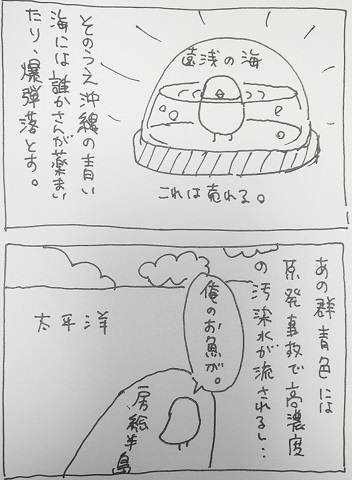 そのうえ沖縄の青い
海には誰かさんが薬まい
たり、爆弾落とす。
遠浅の海
これは売れる。
あの群青色には
原発事故で高濃度
の汚染水が流されるし…
俺のお魚が。
太平洋
房総半島